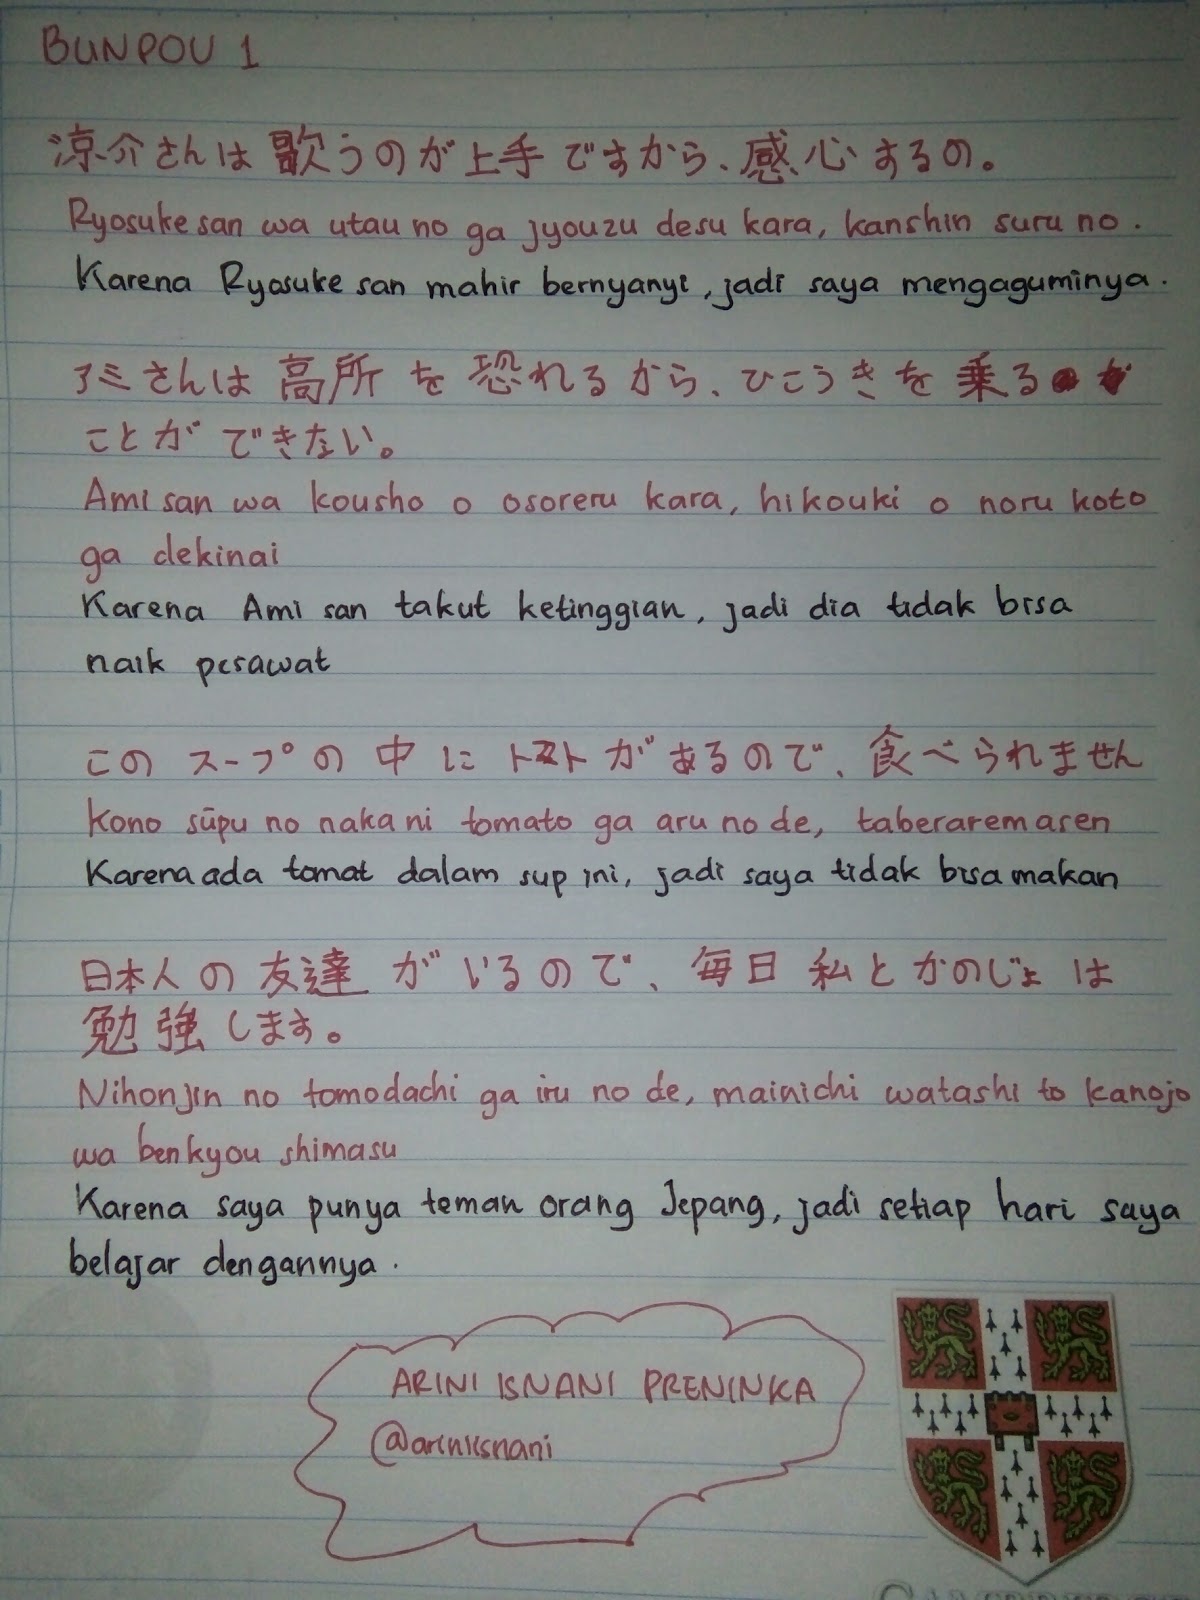 BUNPOU 1
涼介さんは歌うのが上手ですから、感心するの。
Ryosuke san wa utau no ga jyouzu desu kara, kanshin suru no.
Karena Ryosuke san mahir bernyanyi, jadi saya mengaguminya.
アミさんは高所を恐れるから、ひこうきを乗る
ことができない。
Ami san wa kousho o osoreru kara, hikouki o noru koto
ga dekinai
Karena Ami san takut ketinggian, jadi dia tidak bisa
naik pesawat
このスープの中にトマトがあるので、食べられません
Kono sūpu no naka ni tomato ga aru no de, taberaremasen
Karena ada tomat dalam sup ini, jadi saya tidak bisa makan
日本人の友達がいるので、毎日私とかのじょは
勉強します。
Nihonjin no tomodachi ga iru no de, mainichi watashi to kanojo
wa benkyou shimasu
Karena saya punya teman orang Jepang, jadi setiap hari saya
belajar dengannya.
ARINI ISNANI PRENINKA
@ariniisnani